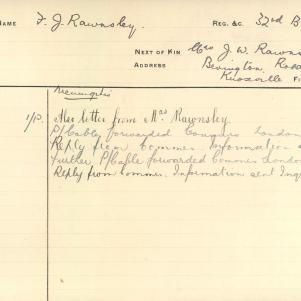 NAME F. J. Rawnsley. REG. &C. 32nd B
NEXT OF KIN Mrs J. W. Rawns
ADDRESS Bevington, Rose
Knoxville Fi
Meningitis
Also letter from Mrs Rawnsley
P/Cably forwarded London
Reply from Commee. Information
Further P/Cable forwarded Commee London
Reply from Commee. Information sent Inq